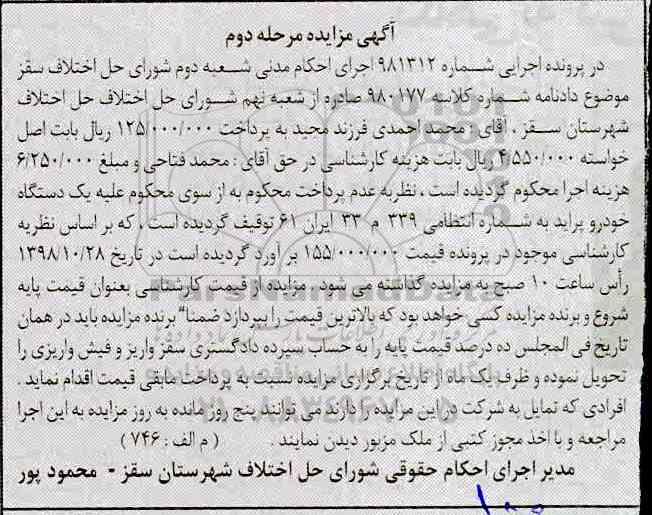 آگهی مزایده مرحله دوم
در پرونده اجرایی شماره ۹۸۱۳۱۲ اجرای احکام مدنی شعبه دوم شورای حل اختلاف سقز
موضوع دادنامه شماره کلاسه ۹۸۰۱۷۷ صادره از شعبه نهم شورای حل اختلاف حل اختلاف
شهرستان سقز ، آقای : محمد احمدی فرزند مجید به پرداخت ۱۲۵/۰۰۰/۰۰۰ ریال بابت اصل
خواسته ۴/۵۵۰/۰۰۰ ریال بابت هزینه کارشناسی در حق آقای : محمد فتاحی و مبلغ ۶/۲۵۰/۰۰۰
هزینه اجرا محکوم گردیده است ، نظربه عدم پرداخت محکوم به از سوی محکوم علیه یک دستگاه
خودرو پراید به شماره انتظامی ۳۳۹ م ۳۳ ایران ۶۱ توقیف گردیده است ، که بر اساس نظریه
کارشناسی موجود در پرونده قیمت ۱۵۵/۰۰۰/۰۰۰ بر آورد گردیده است در تاریخ ۱۳۹۸/۱۰/۲۸
رأس ساعت ۱۰ صبح به مزایده گذاشته می شود . مزایده از قیمت کارشناسی بعنوان قیمت پایه
شروع و برنده مزایده کسی خواهد بود که بالاترین قیمت را بپردازد ضمناً برنده مزایده باید در همان
تاریخ فی المجلس ده درصد قیمت پایه را به حساب سپرده دادگستری سقز واریز و فیش واریزی را
تحویل نموده و ظرف یک ماه از تاریخ برگزاری مزایده نسبت به پرداخت مابقی قیمت اقدام نماید .
افرادی که تمایل به شرکت در این مزایده را دارند می توانند پنج روز مانده به روز مزایده به این اجرا
مراجعه و با اخذ مجوز کتبی از ملک مزبور دیدن نمایند . ( م الف : ۷۴۶ )
مدیر اجرای احکام حقوقی شورای حل اختلاف شهرستان سقز - محمود پور
ParsNamadData